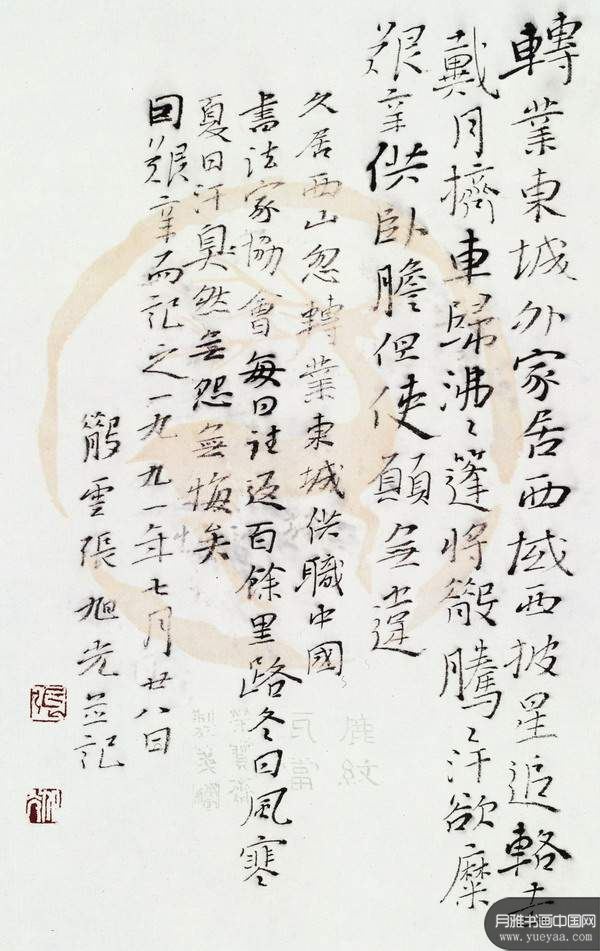 轉業東城外家居西域西披星追輅去
戴月擠車歸沸〻篷將散騰〻汗欲糜
艱辛供臥膽但使願無違
久居西山忽轉業東城供職中國
書法家協會每日往返百餘里路冬日風寒
夏日汗臭然無怨無悔矣
因艱辛而記之一九九一年七月廿八日
散雲張旭光並記
張
月雅书画中国网
www.yueyaa.com